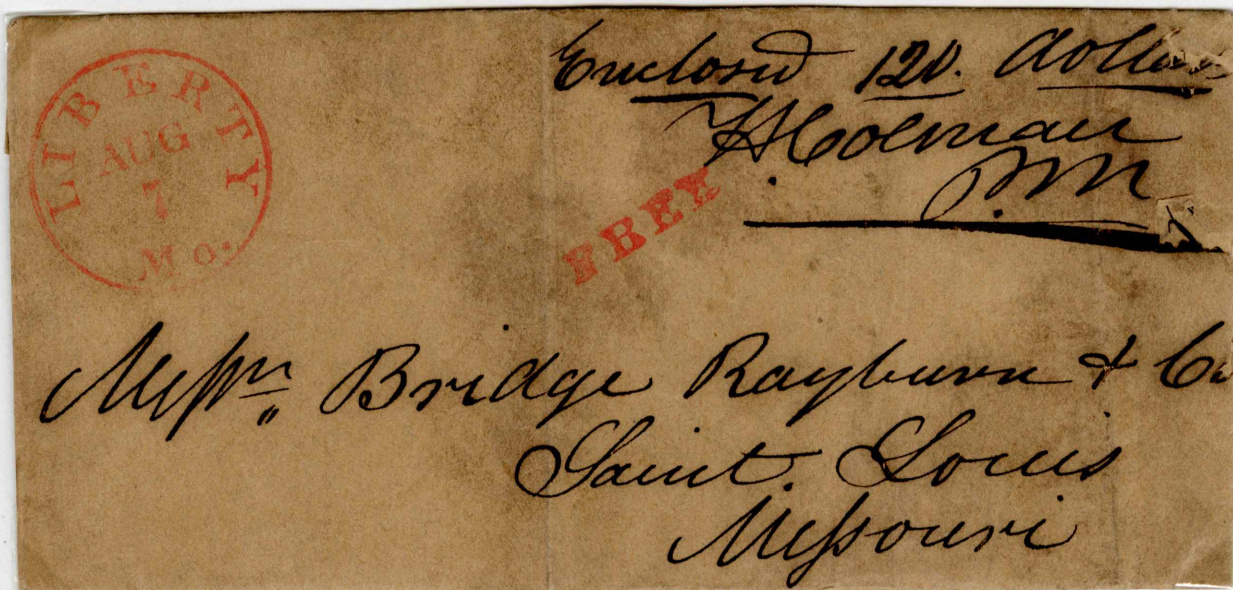 LIBERTY
AUG
7
Mo.
Enclosed 120. dollars
Coleman
P.M
Messrs Bridge Rayburn & Co
Saint Louis
Missouri